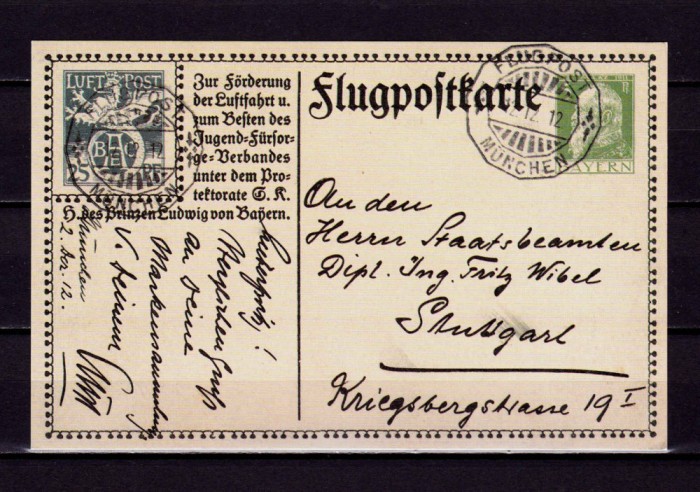 LUFT POST
BAC
25
FLUGPOST
MÜNCHEN
Zur Förderung
der Luftfahrt u.
zum Besten des
Jugend-Fürsor-
ge-Verbandes
unter dem Pro-
tektorate S. K.
H. des Prinzen Ludwig von Bayern.
Flugpostkarte
FLUGPOST
12. 12
MÜNCHEN
BAYERN
An den
Herrn Staatsbeamten
Dipl. Ing. Fritz Wibel
Stuttgart
Kriegsbergstrasse 19 I
München
2. Dez. 12.
Herzlichen Gruß
an Deine
Markensammlung
v. Deinem